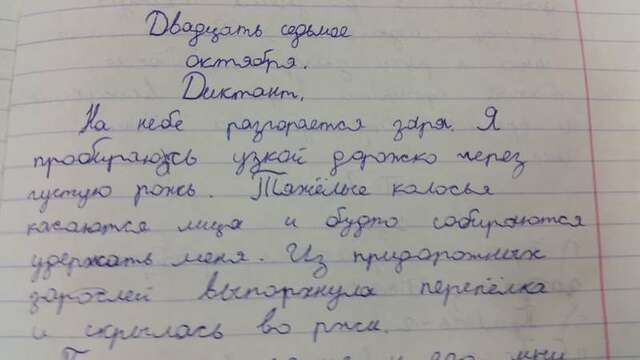 Двадцать седьмое
октября.
Диктант.
На небе разгорается заря. Я
пробираюсь узкой дорожко через
густую рожь. Тяжёлые колосья
касаются лица и будто собираются
удержать меня. Из придорожных
зарослей выпорхнула перепёлка
и скрылась во ржи.